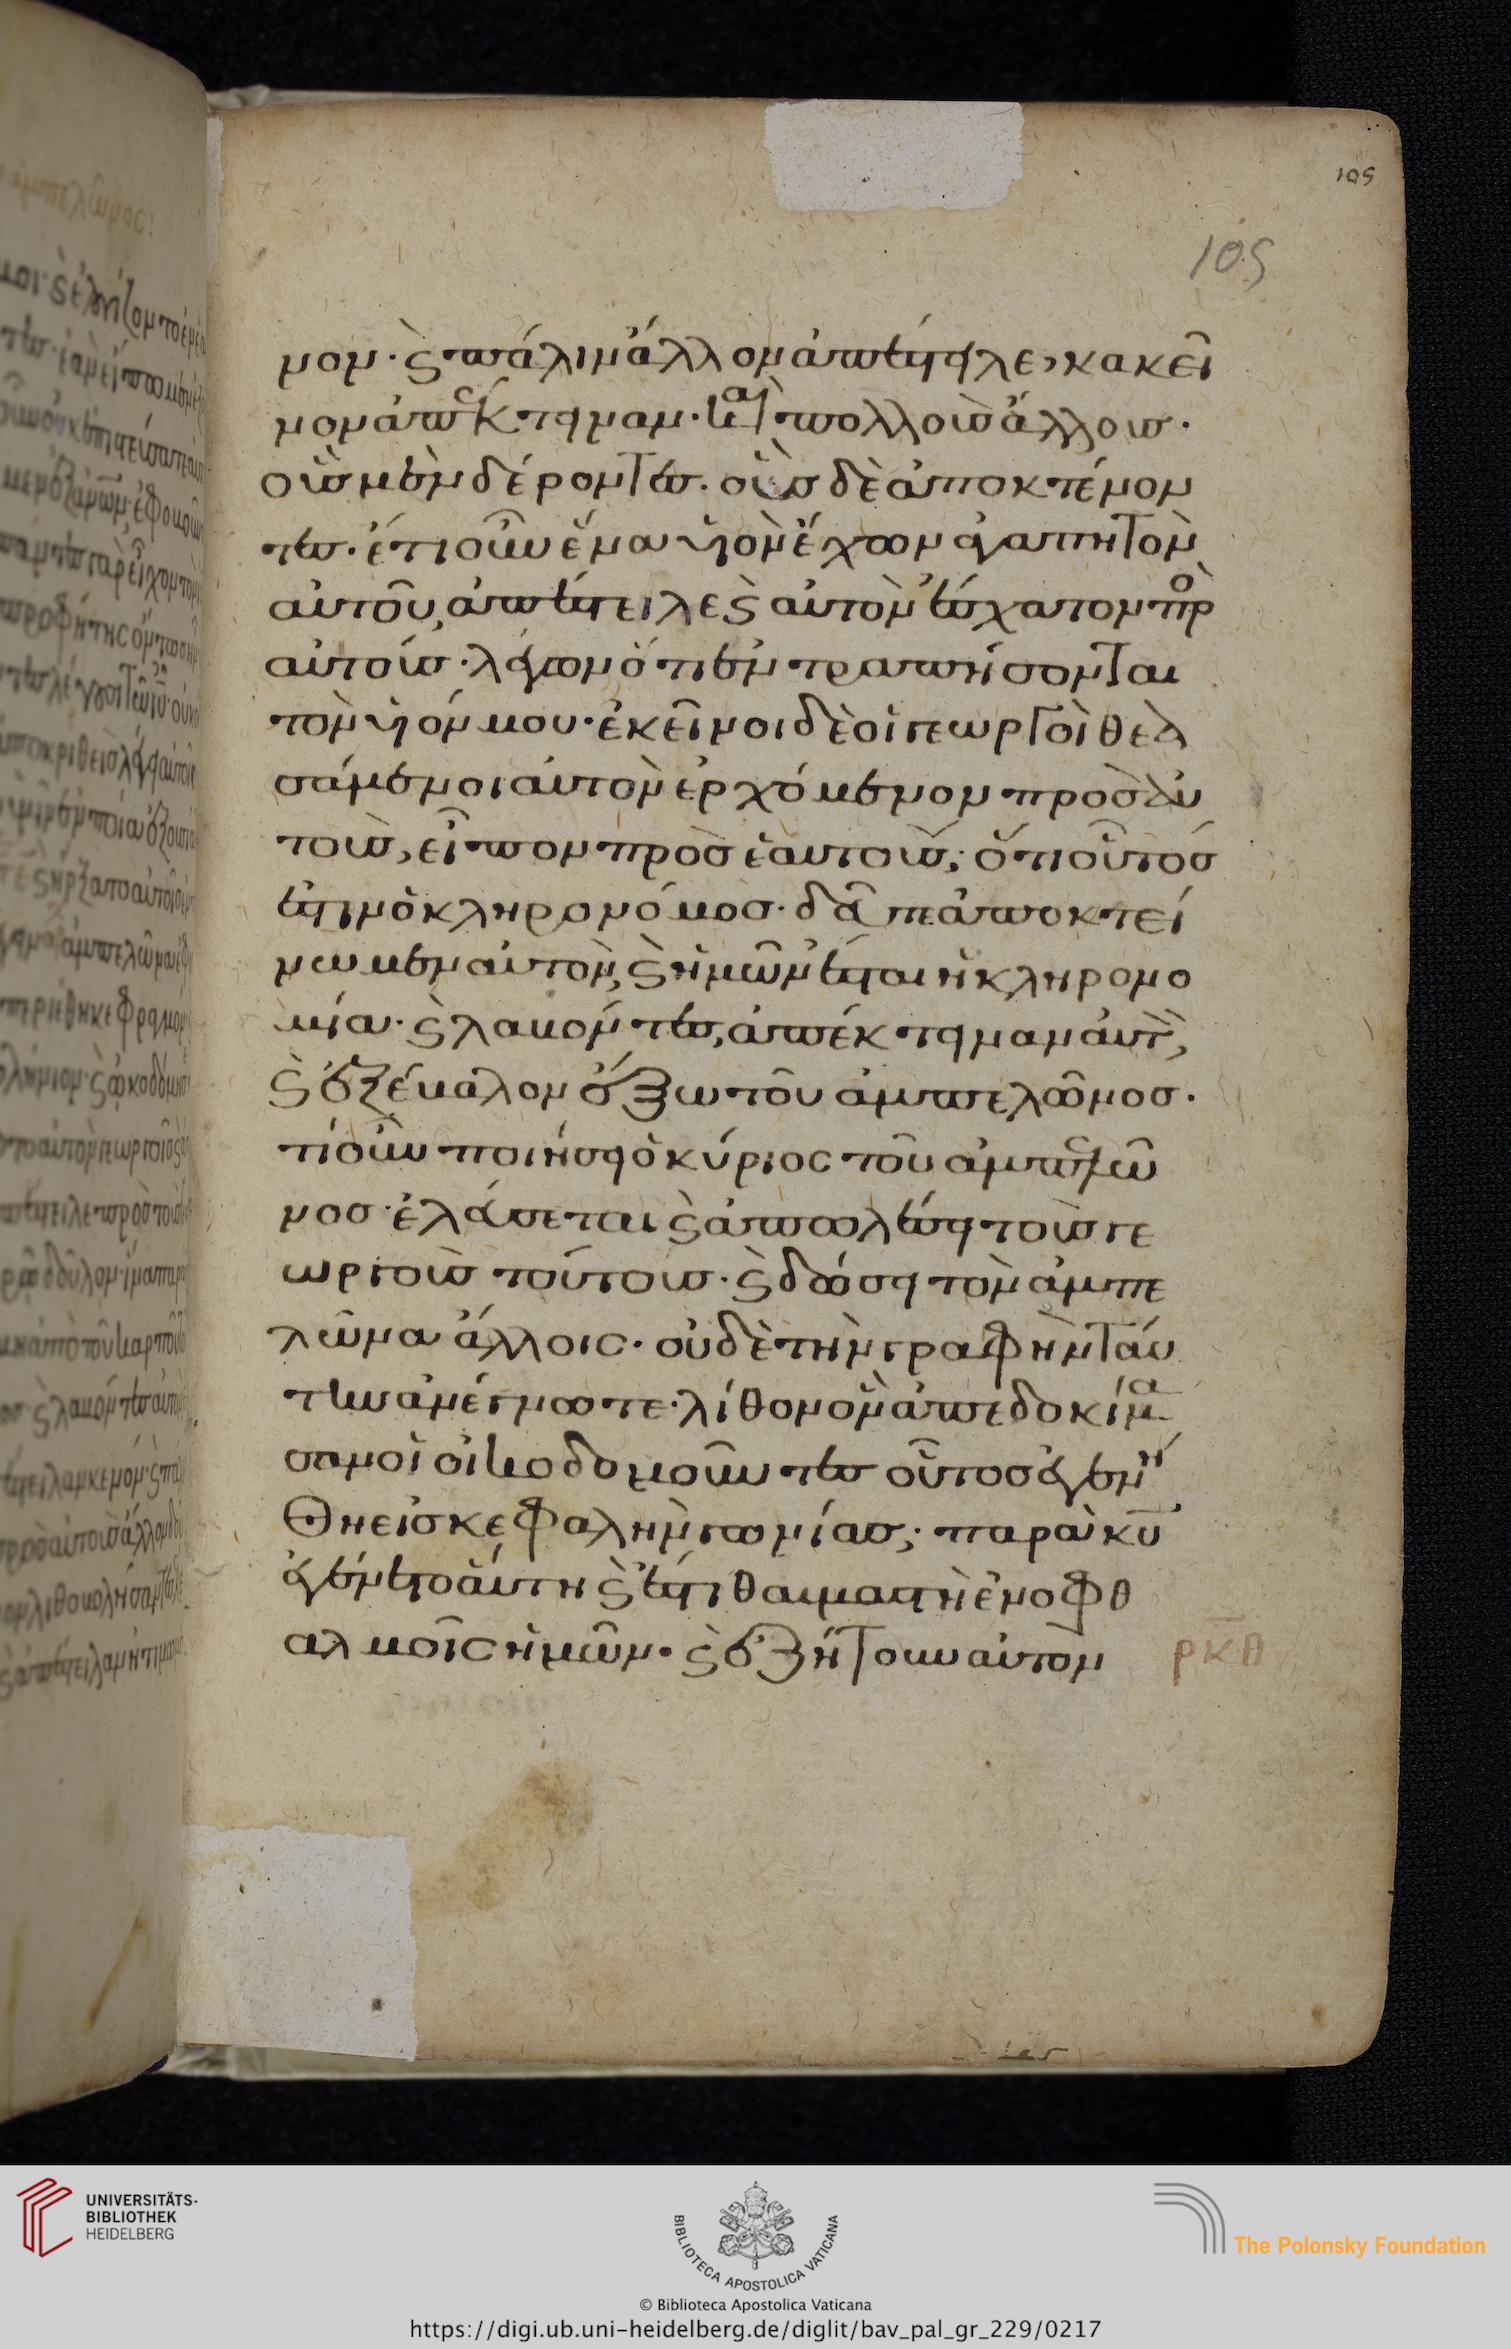 105
105
νον· ϗ πάλιν ἄλλον ἀπέστειλε, κακεῖ
νον ἀπέκτειναν· καὶ πολλοὺς ἄλλους·
οὓς μὲν δέροντες· οὓς δὲ ἀποκτένον
τες· ἔτι οὖν ἕνα ϋἱὸν ἔχων ἀγαπητὸν
αὐτοῦ, ἀπέστειλε ϗ αὐτὸν ἔσχατον πρὸς
αὐτούς· λέγων ὅτι ἐντραπήσονται
τὸν ϋἱόν μου· ἐκεῖνοι δὲ οἱ γεωργοὶ θεα
σάμενοι αὐτὸν ἐρχόμενον πρὸς αὐ
τοὺς, εἶπον πρὸς ἑαυτούς; ὅτι οὗτός
ἐστιν ὁ κληρονόμος· δεῦτε ἀποκτεί
νωμεν αὐτὸν, ϗ ἡμῶν ἔσται ἡ κληρονο
μία· ϗ λαβόντες, ἀπέκτειναν αὐτὸν,
ϗ ἐξέβαλον ἔξω τοῦ ἀμπελῶνος·
τί οὖν ποιήσει ὁ κύριος τοῦ ἀμπελῶ
νος· ἐλεύσεται ϗ ἀπωλέσει τοὺς γε
ωργοὺς τούτους· ϗ δώσει τὸν ἀμπε
λῶνα ἄλλοις· οὐδὲ τὴν γραφὴν ταύ
την ἀνέγνωτε· λίθον ὃν ἀπεδοκίμα
σαν οἱ οἰκοδομοῦντες οὗτος ἐγενή
θη εἰς κεφαλὴν γωνίας; παρὰ κυ
ἐγένετο αὕτη ϗ ἔστι θαυμαστὴ ἐν οφθ
αλμοῖς ἡμῶν· ϗ ἐζήτουν αὐτὸν
ρκθ
UNIVERSITÄTS-
BIBLIOTHEK
HEIDELBERG
BIBLIOTECA APOSTOLICA VATICANA
The Polonsky Foundation
© Biblioteca Apostolica Vaticana
https://digi.ub.uni-heidelberg.de/diglit/bav_pal_gr_229/0217